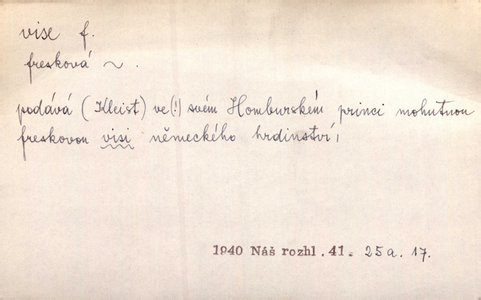 vise f.
fresková ~.
podává (Kleist) ve(!) svém Homburském princi mohutnou
freskovou visi německého hrdinství,
1940 Náš rozhl. 41. 25a. 17.